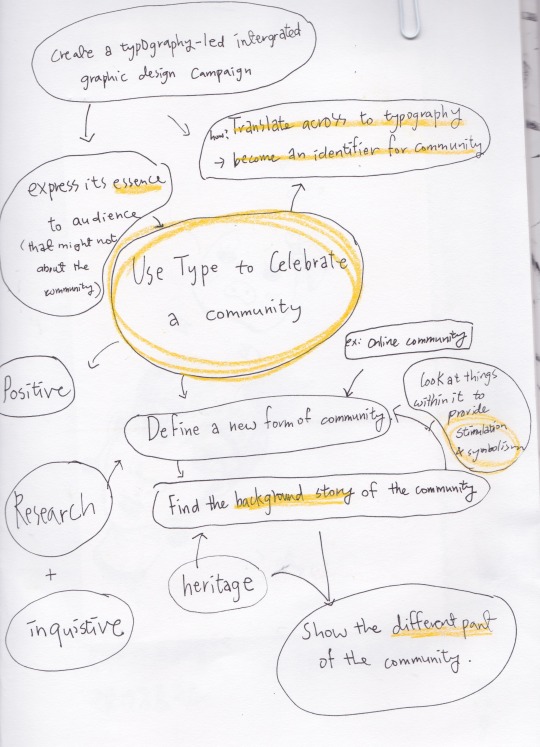 Create a typography-led intergrated
graphic design Campaign
how?
Translate across to typography
→ become an identifier for community
express its essence
to audience
(that might not
about the
community)
Use Type to Celebrate
a community
Positive
ex: Online community
Look at things
within it to
provide
stimulation
& symbolism
Define a new form of community
Find the background story of the community
Research
+
inquistive
heritage
Show the different part
of the community.